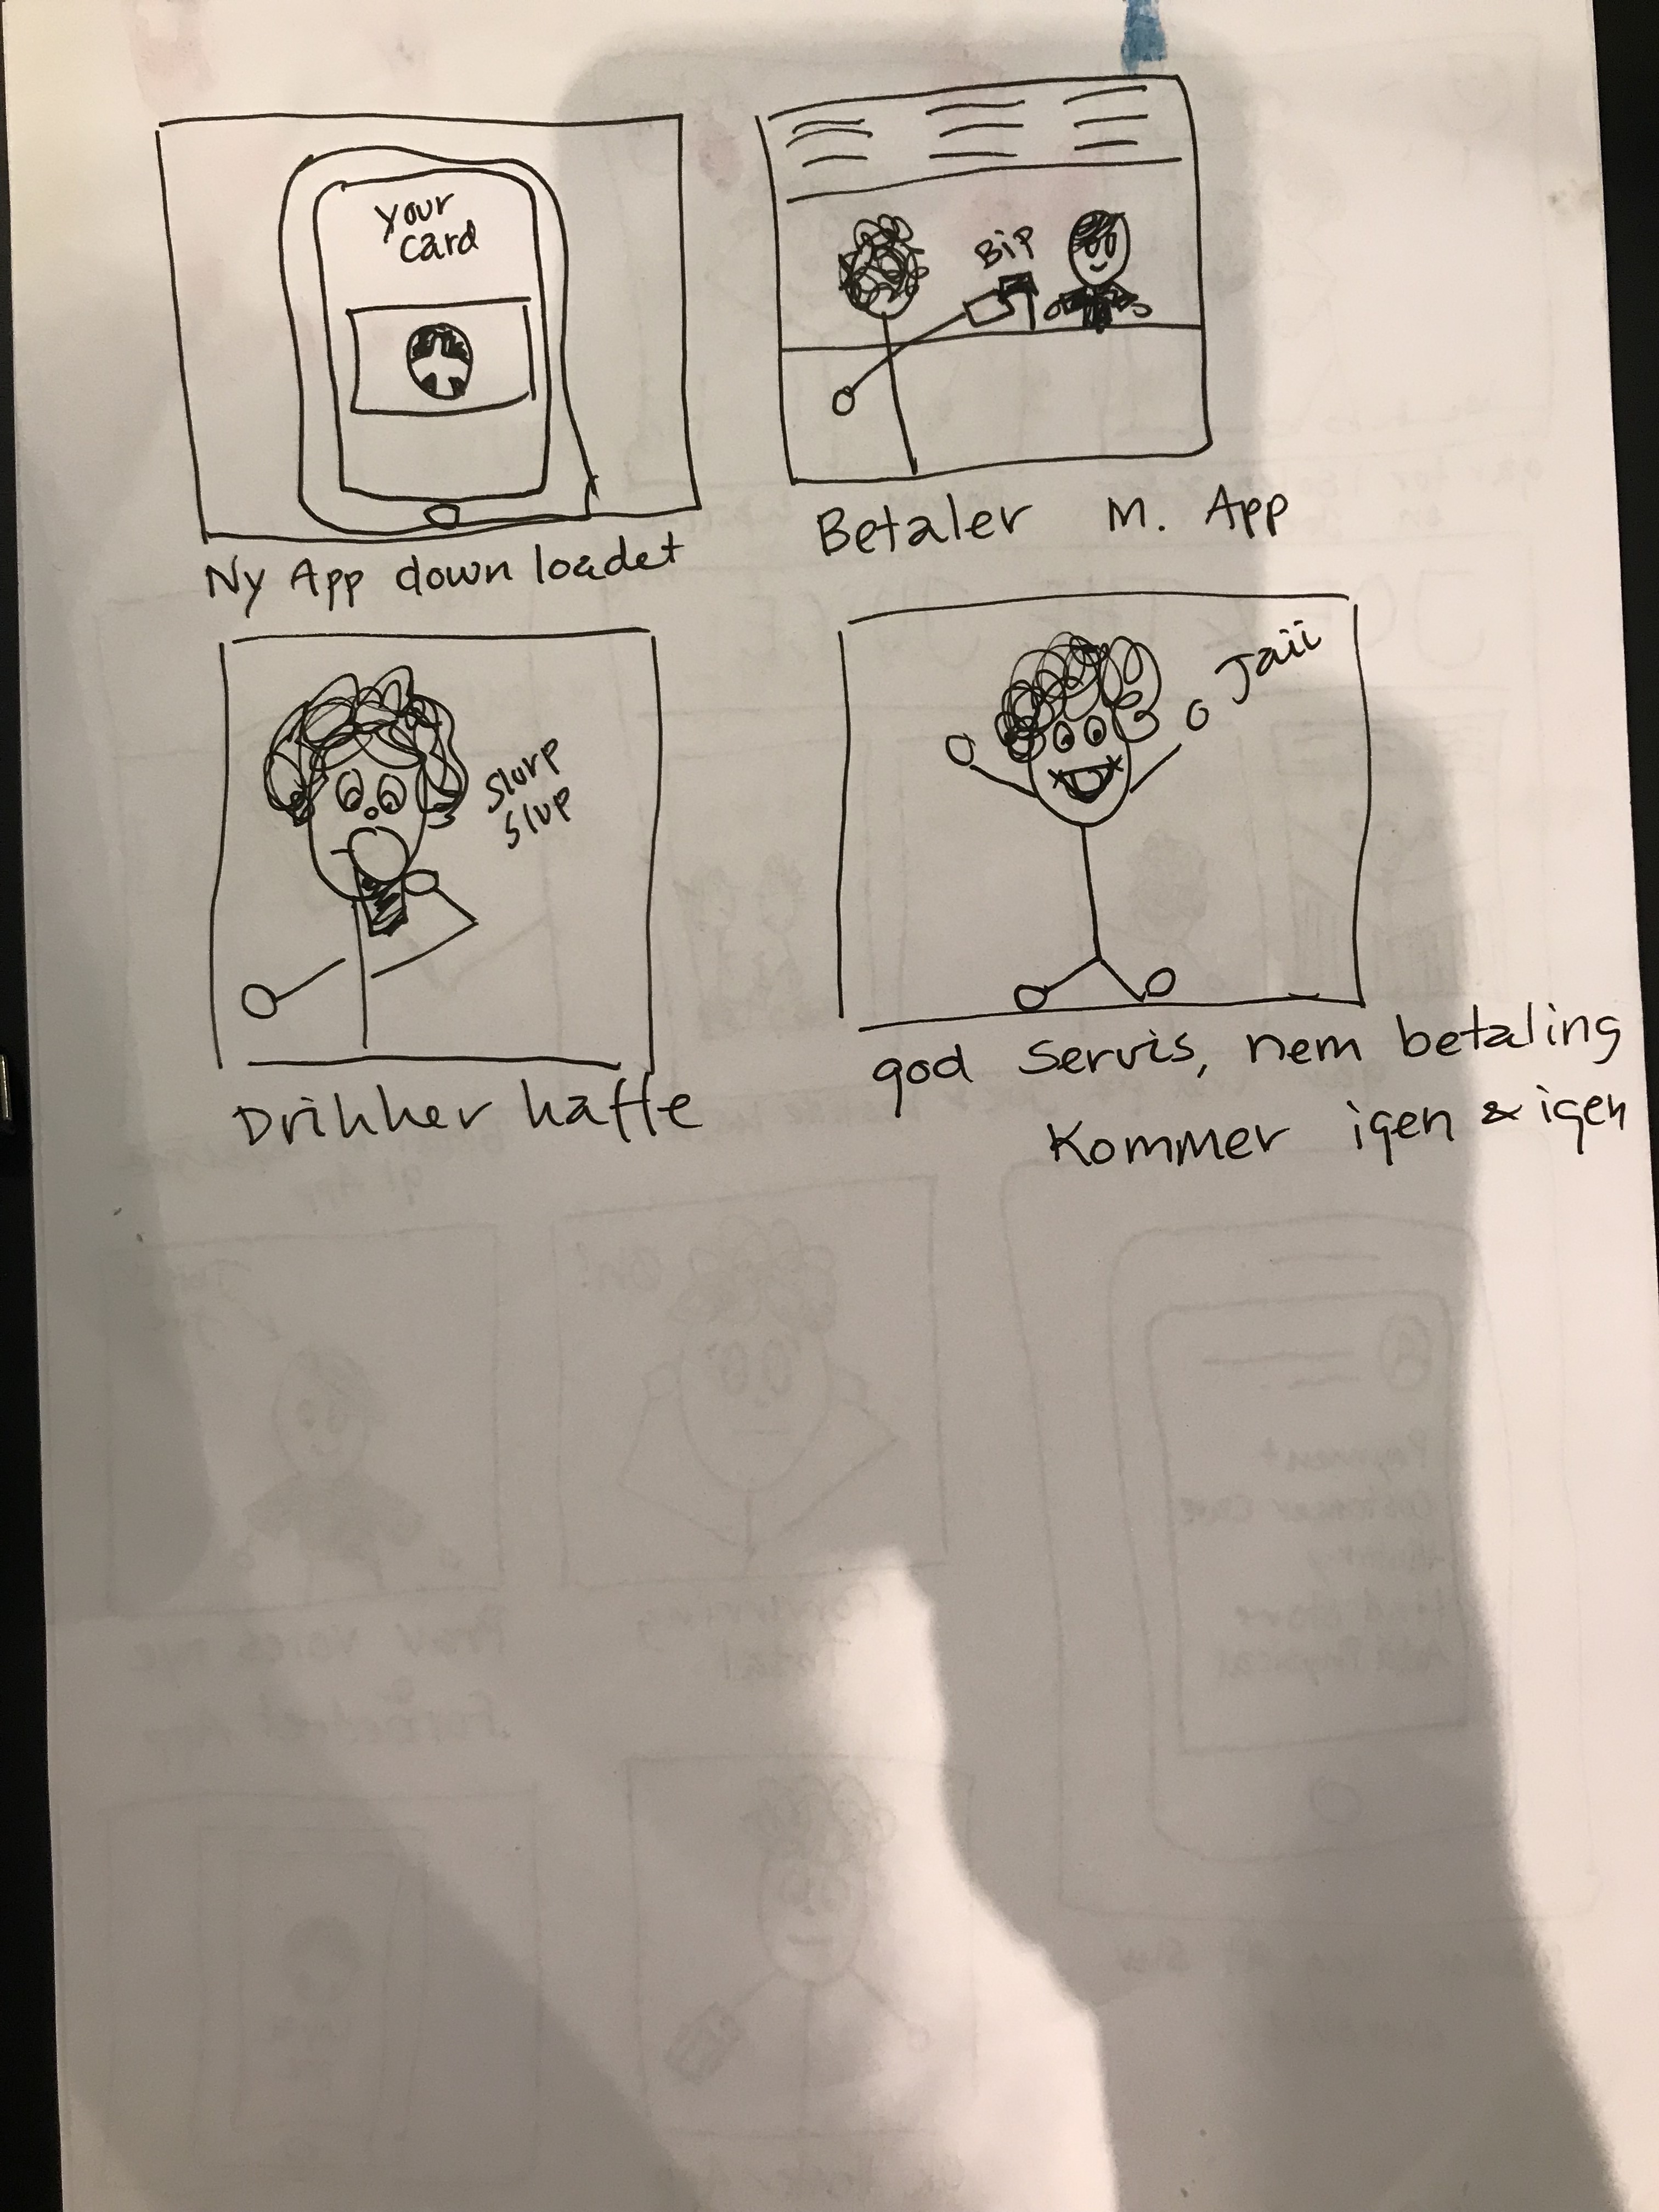 your
card
Ny App down loadet
Bip
Betaler M. App
Slurp
Slup
Drikker kaffe
Jaiii
god Servis, nem betaling
Kommer igen & igen